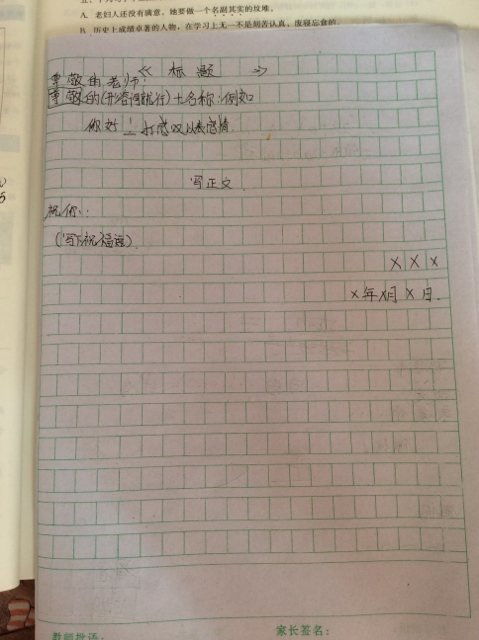 A. 老妇人还没有满意，她要做一个名副其实的女地，
B. 历史上成绩卓著的人物，在学习上无一不是刻苦认真，废寝忘食的。
《标题》
尊敬的老师：
尊敬的(形容词就行)+名称：例如
你好！打感叹以表感情
写正文
祝你：
(写下祝福语)
X X X
X年X月X日.
教师批语：
家长签名：